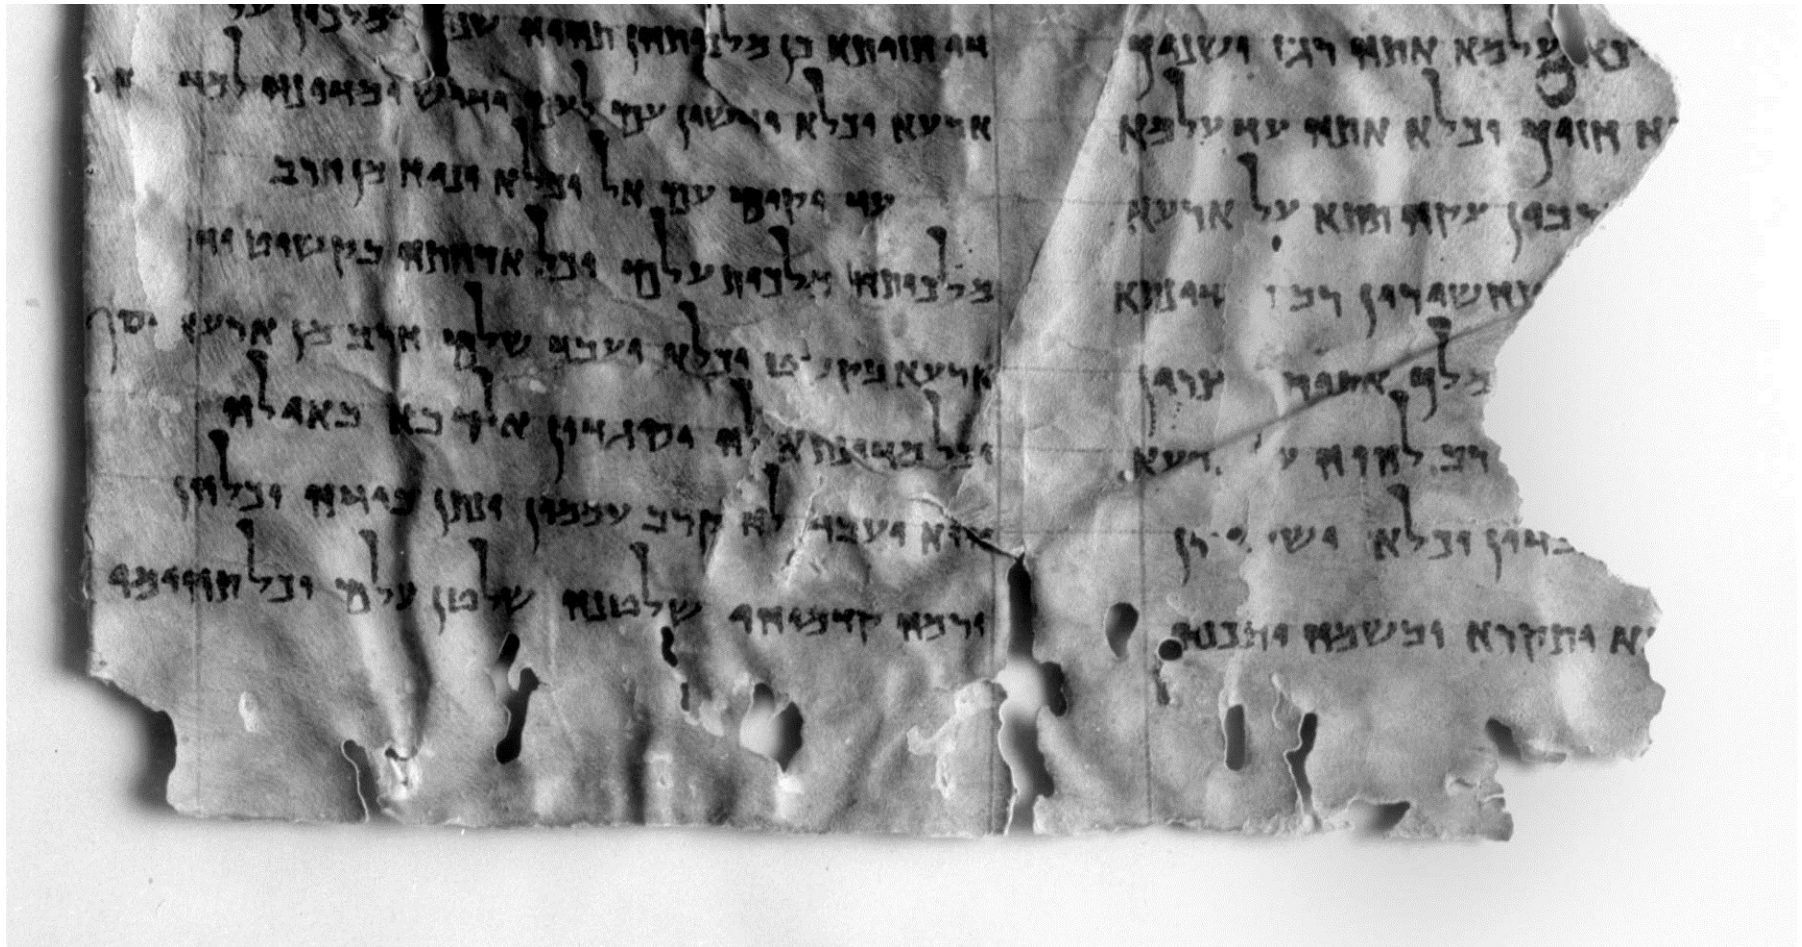 עלמא אתה רגז ושניך
א חזוך וכלא אתה עד עלמא
רברבין עקה תתא על ארעא
ונחשירון רב מדינתא
מלך אתור צרין
רב להוה ע ארעא
עבדון וכלא ישמשון
א יתקרא ובשמה יתכנה
די חזותא כן מלכותהן תהוה שני ימלכון על
ארעא וכלא ידשון עם לעם ידוש ומדינה למדי ה
עד יקום עם אל וכלא יניח מן חרב
מלכותה מלכות עלם וכל ארחתה בקשוט ידי
ארעא בקשט וכלא יעבד שלם חרב מן ארעא יסף
וכל מדינתא לה יסגדון אל רבא באילה
הוא יעבד לה קרב עממין ינתן בידה וכלהן
ירמה קדמוהי שלטנה שלטן עלם וכל תהומי